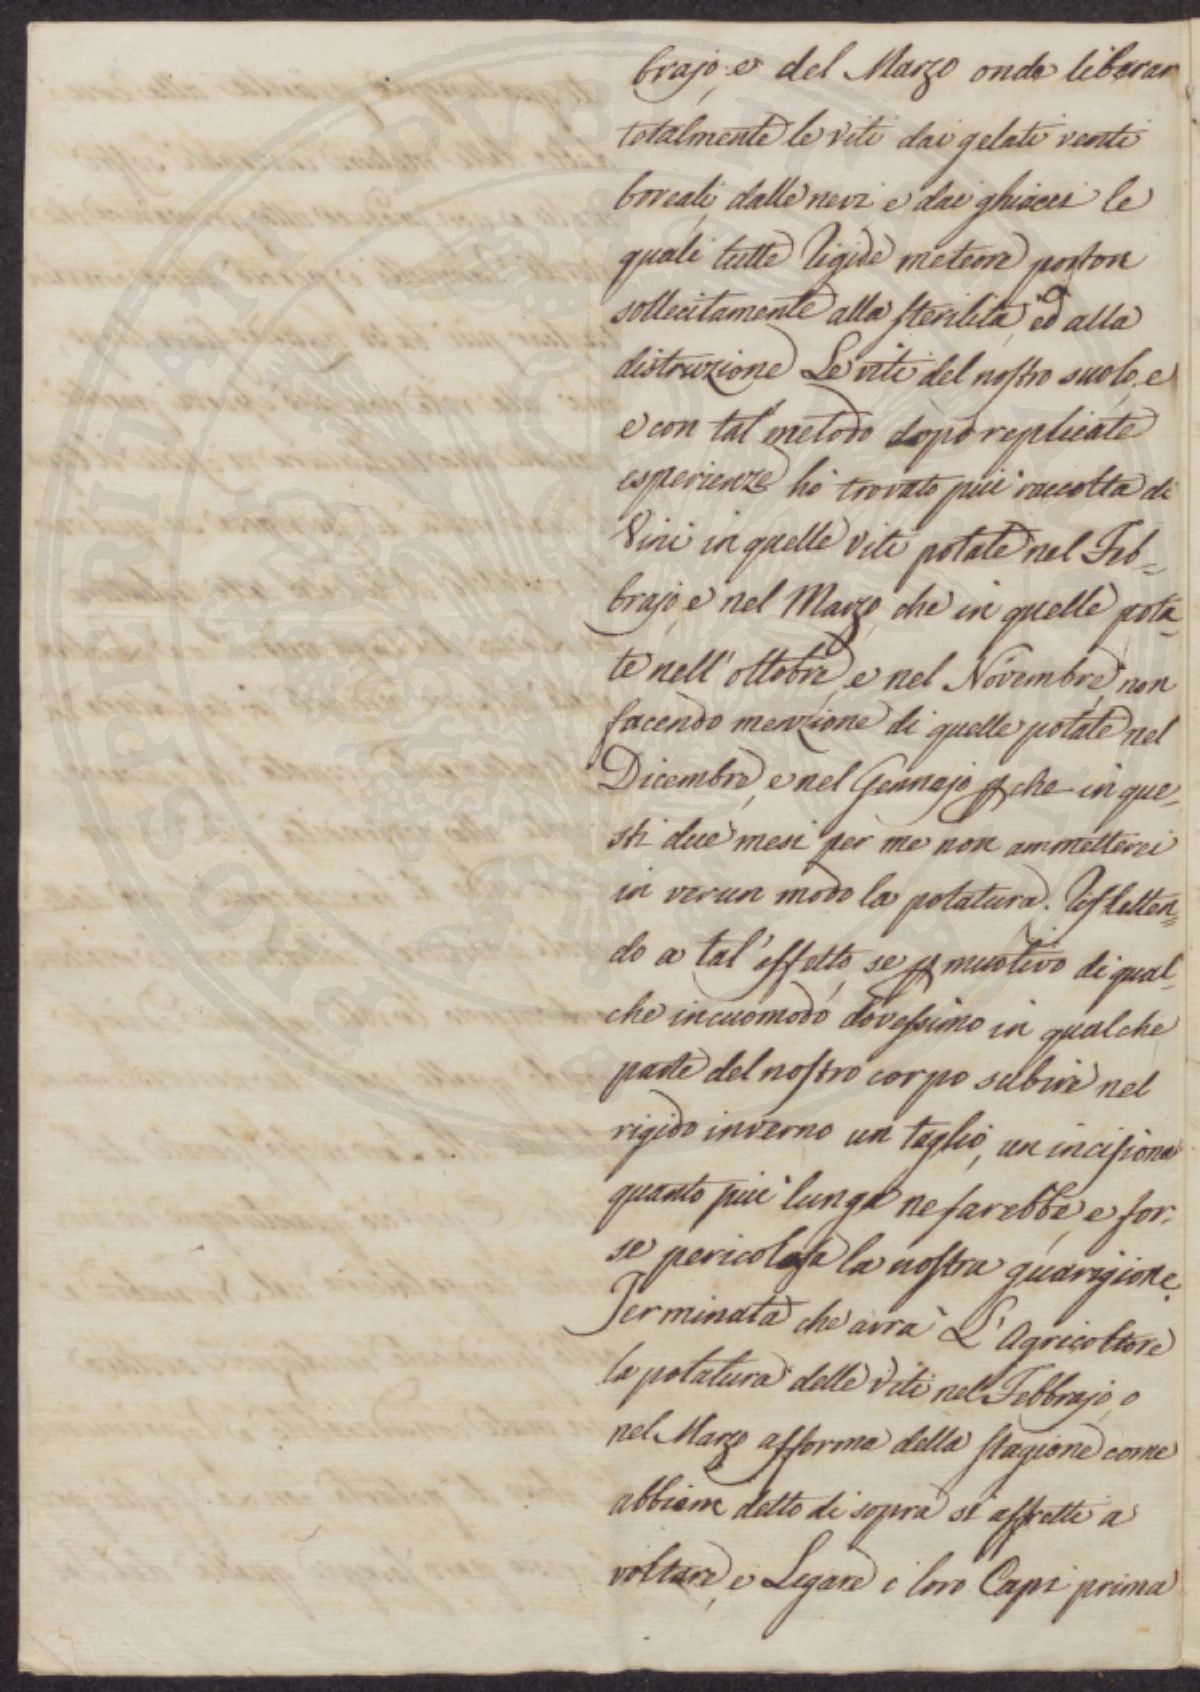 brajo, e del Marzo onde liberar
totalmente le viti dai gelati venti
boreali, dalle nevi e dai ghiacci le
quali tutte rigide meteore porton
sollecitamente alla sterilità, ed alla
distruzione Le viti del nostro suolo, e
e con tal metodo dopo replicate
esperienze hò trovato più raccolta di
Vini in quelle viti potate nel Feb=
brajo, e nel Marzo, che in quelle pota=
te nell'ottobre, e nel Novembre, non
facendo menzione di quelle potate nel
Dicembre, e nel Gennajo che in que=
sti due mesi per me non ammetterei
in verun modo la potatura. Rifletten=
do a tal'effetto, se muotivo di qual=
che incuomodo dovessimo in qualche
parte del nostro corpo subire nel
rigido inverno un taglio, un incisione
quanto più lunga ne sarebbe, e for=
se pericolosa la nostra guarigione.
Terminata che avrà L'Agricoltore
la potatura delle viti nel Febbrajo, o
nel Marzo afforma della stagione come
abbiam detto di sopra si affretti a
voltare, e Legare i loro Capi prima
PROSPERITATI PUBLICAE